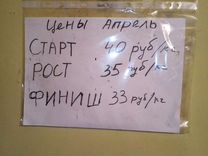 Цены Апрель
СТАРТ 40 руб/кг
РОСТ 35 руб/кг
ФИНИШ 33 руб/кг